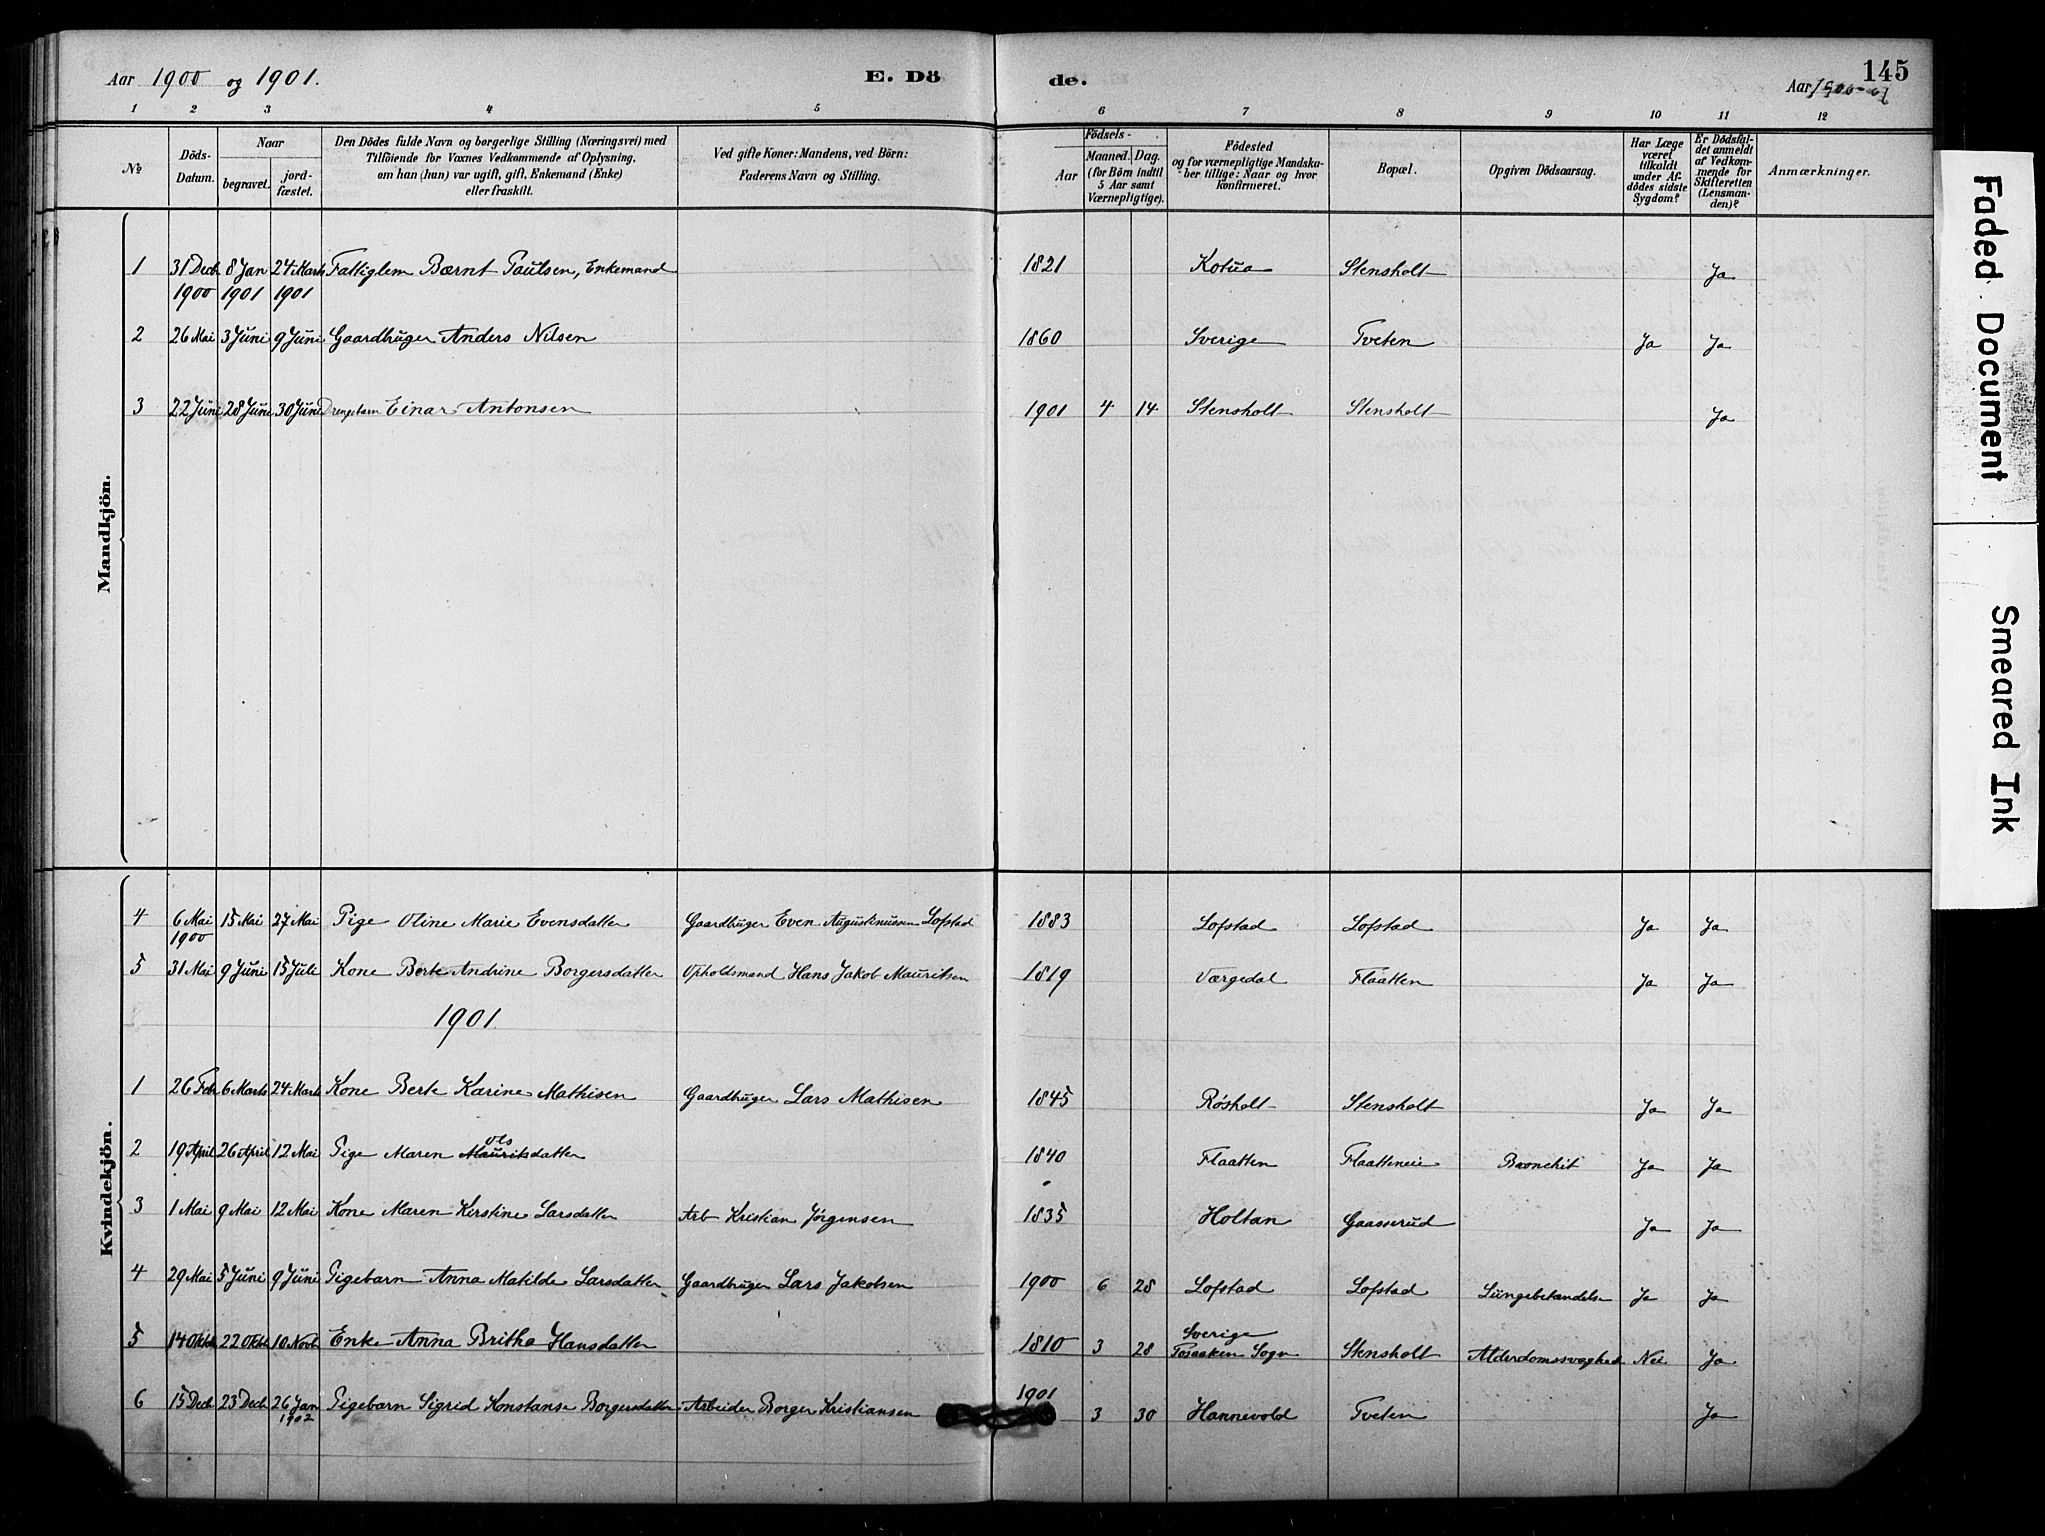 Aar 1900 og 1901. E. Dö de. Aar 1900-01 145
1 2 3 4 5 6 7 8 9 10 11 12
No Döds-Datum. Naar begravet. jordfæstet. Den Dödes fulde Navn og borgerlige Stilling (Næringsvei) med Tilföiende for Voxnes Vedkommende af Oplysning, om han (hun) var ugift, gift, Enkemand (Enke) eller fraskilt. Ved gifte Koner: Mandens, ved Börn: Faderens Navn og Stilling. Födsels- Aar Maaned. Dag. (for Börn indtil 5 Aar samt Værnepligtige). Födested og for værnepligtige Mandskaber tillige: Naar og hvor konfirmeret. Bopæl. Opgiven Dödsaarsag. Har Læge været tilkaldt under Afdödes sidste Sygdom? Er Dödsfaldet anmeldt af Vedkommende for Skifteretten (Lensmanden)? Anmærkninger.
Mandkjön.
1 31 Decb 1900 8 Jan 1901 24 Marts 1901 Fattiglem Bærnt Paulsen, Enkemand 1821 Kolua Stensholt Ja
2 26 Mai 3 Juni 9 Juni Gaardbruger Anders Nilsen 1860 Sverige Tveten Ja Ja
3 22 Juni 28 Juni 30 Juni Drengebarn Einar Antonsen 1901 4 14 Stensholt Stensholt Ja
Kvindekjön.
4 6 Mai 1900 15 Mai 27 Mai Pige Oline Marie Evensdatter Gaardbruger Even Augustinussen Lofstad 1883 Lofstad Lofstad Ja Ja
5 31 Mai 9 Juni 15 Juli Kone Berte Andrine Borgersdatter Opholdsmand Hans Jakob Mauritsen 1819 Værgedal Flaatten Ja Ja
1901
1 26 Febr 6 Marts 24 Marts Kone Berte Karine Mathisen Gaardbruger Lars Mathisen 1845 Røsholt Stensholt Ja Ja
2 19 April 26 April 12 Mai Pige Maren Mauritsdatter Ols 1840 Flaatten Flaatteneie Bronchit Ja Ja
3 1 Mai 9 Mai 12 Mai Kone Maren Kirstine Larsdatter Arb Kristian Jørgensen 1835 Holtan Gaasserud Ja Ja
4 29 Mai 5 Juni 9 Juni Pigebarn Anna Matilde Larsdatter Gaardbruger Lars Jakobsen 1900 6 28 Lofstad Lofstad Lungebetændelse Ja Ja
5 14 Oktb 22 Oktb 10 Novb Enke Anna Britha Hansdatter 1810 3 28 Sverige Sogn Stensholt Alderdomssvaghed Nei Ja
6 15 Decb 23 Decb 26 Jan 1902 Pigebarn Sigrid Konstanse Borgersdatter Arbeider Borger Kristiansen 1901 3 30 Hannevold Tveten Ja
Faded Document
Smeared Ink